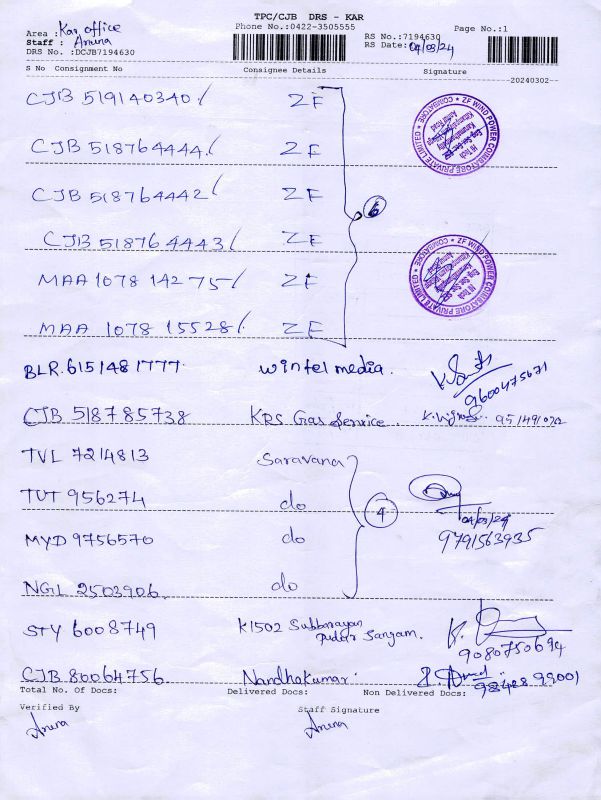 TPC/CJB DRS - KAR
Phone No.:0422-3505555
Page No.:1
Area : Kar office
RS No.:7194630
Staff : Aruna
RS Date: 04/03/24
DRS No. :DCJB7194630
S No Consignment No Consignee Details Signature
20240302
CJB 519140340 / ZF
CJB 518764444 / ZF
CJB 518764442 / ZF
6
CJB 518764443 / ZF
MAA 1078 14275 / ZF
MAA 1078 15528 / ZF
ZF WIND POWER COIMBATORE PRIVATE LIMITED * COIMBATORE
ZF WIND POWER COIMBATORE PRIVATE LIMITED * COIMBATORE
BLR.6151481777. wintel media.
9600475671
CJB 518785738 KRS Gas Service.
TVL 7214813 Saravana
TUT 956274 do
4
04/03/24
MYD 9756570 do 9791563935
NGL 2503906 do
STY 6008749 K1502 Subbarayan
Pudur Sangam.
9080750694
CJB 80064756 Nandhakumar.
Total No. Of Docs: Delivered Docs: Non Delivered Docs:
Verified By Staff Signature
Aruna Aruna